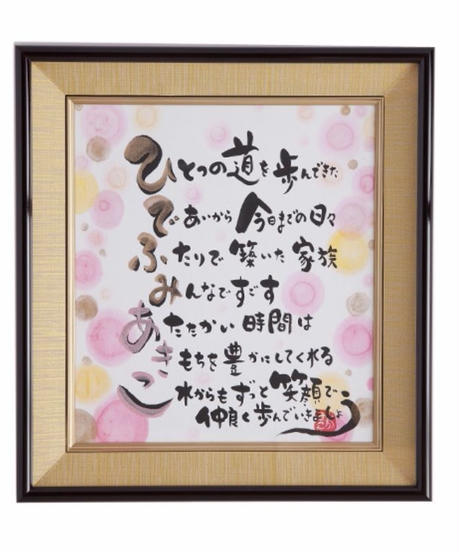 ひとつの道を歩んできた
であいから今日までの日々
ふたりで築いた家族
みんなですごす
あたたかい時間は
きもちを豊かにしてくれる
これからもずっと笑顔で
仲良く歩んでいきましょう